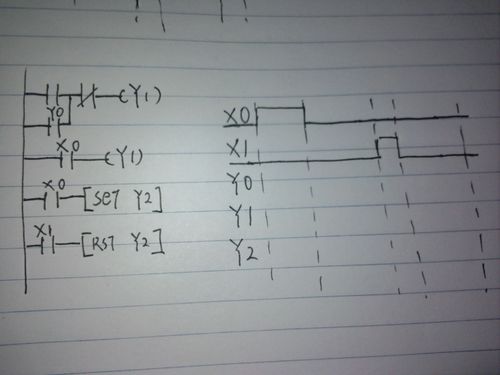 (Y1)
Y0
X0
(Y1)
X0
[SET Y2]
X1
[RST Y2]
X0
X1
Y0
Y1
Y2